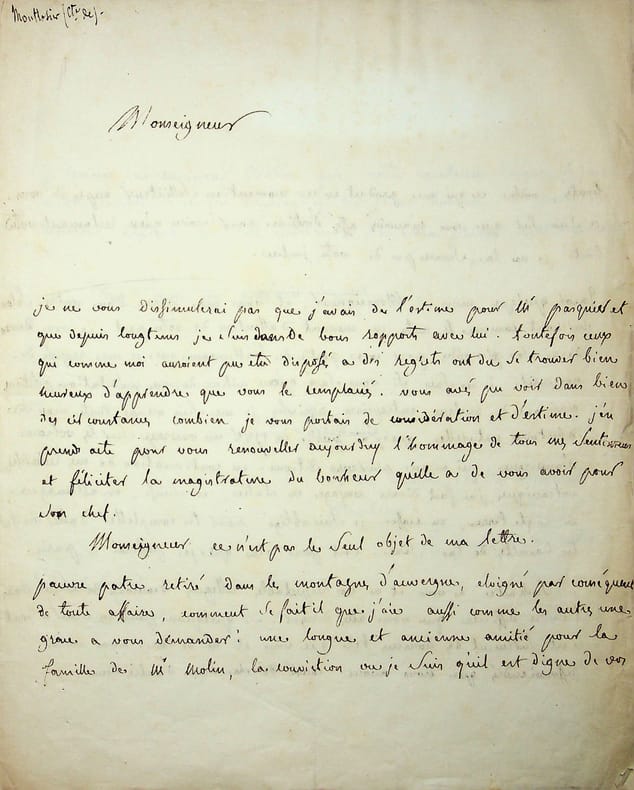 Montlosier (Cte de).
Monseigneur
je ne vous dissimulerai pas que j'avais de l'estime pour Mr pasquier et
que depuis longtems je suis dans de bons rapports avec lui. toutefois ceux
qui comme moi auroient pu etre disposé a des regrets ont du se trouver bien
heureux d'apprendre que vous le remplaciés. vous avés pu voir dans bien
des circonstances combien je vous portais de considération et d'estime. j'en
prend acte pour vous renouveller aujourdhuy l'hommage de tous mes sentimens
et féliciter la magistrature du bonheur qu'elle a de vous avoir pour
son chef.
Monseigneur ce n'est pas le seul objet de ma lettre.
pauvre patre retiré dans les montagnes d'auvergne, eloigné par conséquent
de toute affaire, comment se fait il que j'aie aussi comme les autres une
grace a vous demander! une longue et ancienne amitié pour la
famille de Mr Molin, la conviction ou je suis qu'il est digne de vos